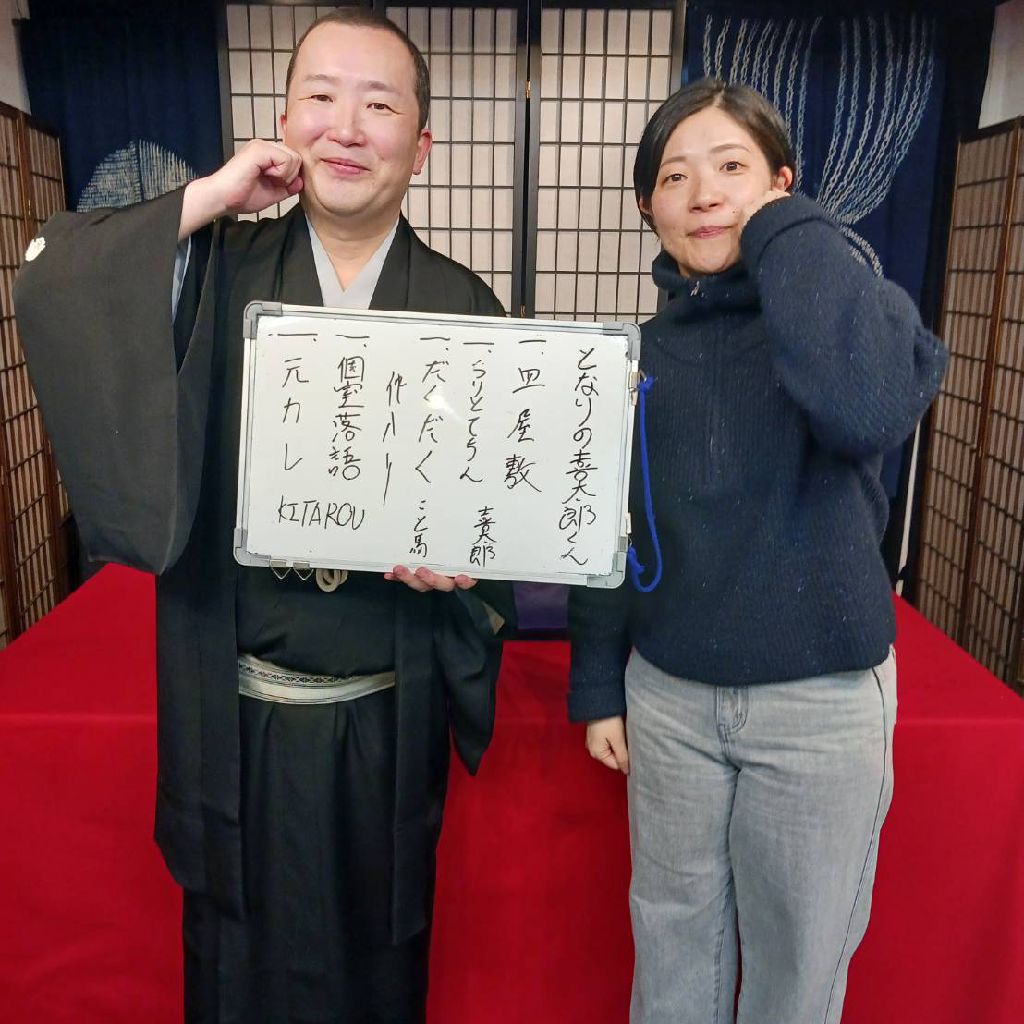 となりの喜太郎くん
一、皿屋敷
一、うりとてちん 喜太郎
一、だくだく こと馬
仲入り
一、個室落語
一、元カレ KITAROU